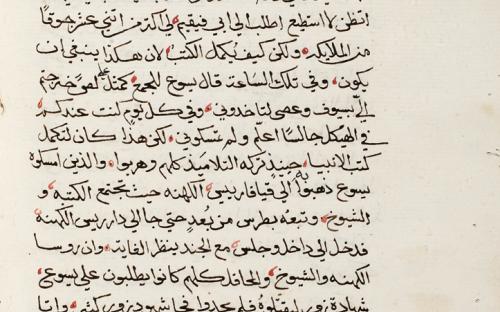 اتظن لا استطيع اطلب الي ابي فيقيم لي اكثر من اثني عشر جوقا
من الملايكه ولكن كيف تكمل الكتب لان هكذا ينبغي ان
يكون وفي تلك الساعة قال يسوع للجمع كمثل لص خرجتم
الي بسيوف وعصي لتاخدوني وفي كل يوم كنت عندكم
في الهيكل جالسا اعلم ولم تمسكوني لكن هذا كان لتكمل
كتب الانبيا حينيذ تركه التلاميذ كلهم وهربوا والذين امسكوا
يسوع ذهبوا به الي قيافا ريس الكهنه حيث يجتمع الكتبه و
الشيوخ وتبعه بطرس من بعد حتي جا الي دار ريس الكهنة
فدخل الي داخل وجلس مع الجند ينظر الغايه وان روسا
الكهنه والشيوخ والمحافل كلهم كانوا يطلبون علي يسوع
شهادة زور ليقتلوه فلم يجدوا فجا شهود زور كثير واتا